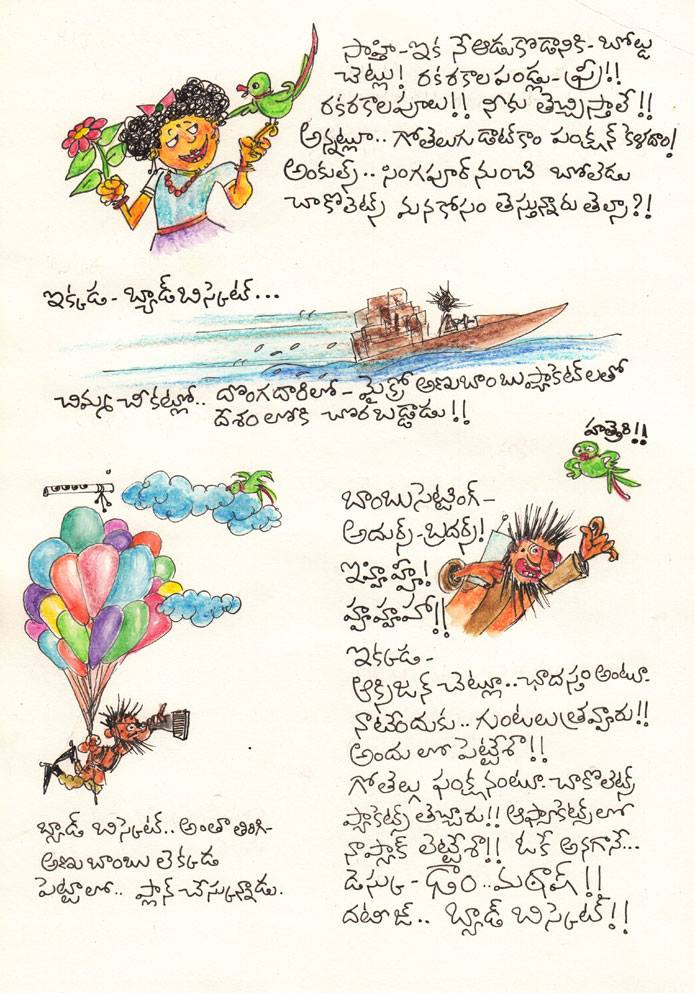 సాహితి - ఇక నే ఆడుకొడానికి - బోల్డు
చెట్లు! రకరకాల పండ్లు - ఫ్రీ!!
రకరకాలపూలు!! నీకు తెచ్చిస్తాలే!!
అన్నట్లూ.. గోతెలుగు డాట్‌కాం ఫంక్షన్ కెళదాం!
అంకుల్స్.. సింగపూర్ నుంచి బోలెడు
చాకొలెట్స్ మనకోసం తెస్తున్నారు తెల్సా?!
ఇక్కడ - బ్యాడ్ బిస్కెట్...
చిమ్మ చీకట్లో.. దొంగదారిలో - మైక్రో అణుబాంబు ప్యాకెట్‌లతో
దేశంలోకి చొరబడ్డాడు!!
హత్తెరి!!
బాంబు సెట్టింగ్ -
అదుర్స్ - బ్రదర్స్!
ఇహ్హిహ్హి!
హ్హహ్హహో!!
ఇక్కడ -
ఆక్సిజన్ చెట్లూ.. ఛాదస్తం అంటూ.
నాటేందుకు.. గుంటలు త్రవ్వారు!!
అందులో పెట్టేశా!!
గోతెల్గు ఫంక్షనంటూ. చాకొలెట్స్
ప్యాకెట్స్ తెచ్చారు!! ఆ ప్యాకెట్స్ లో
నా ప్యాక్ లెట్టేశా!! ఓకే అనగానే...
డెస్కు - ఢాం.. మఠాష్!!
దటీజ్.. బ్యాడ్ బిస్కెట్!!
బ్యాడ్ బిస్కెట్.. అంతా తిరిగి -
అణుబాంబు లెక్కడ
పెట్టాలో.. ప్లాన్ చేస్కున్నాడు.